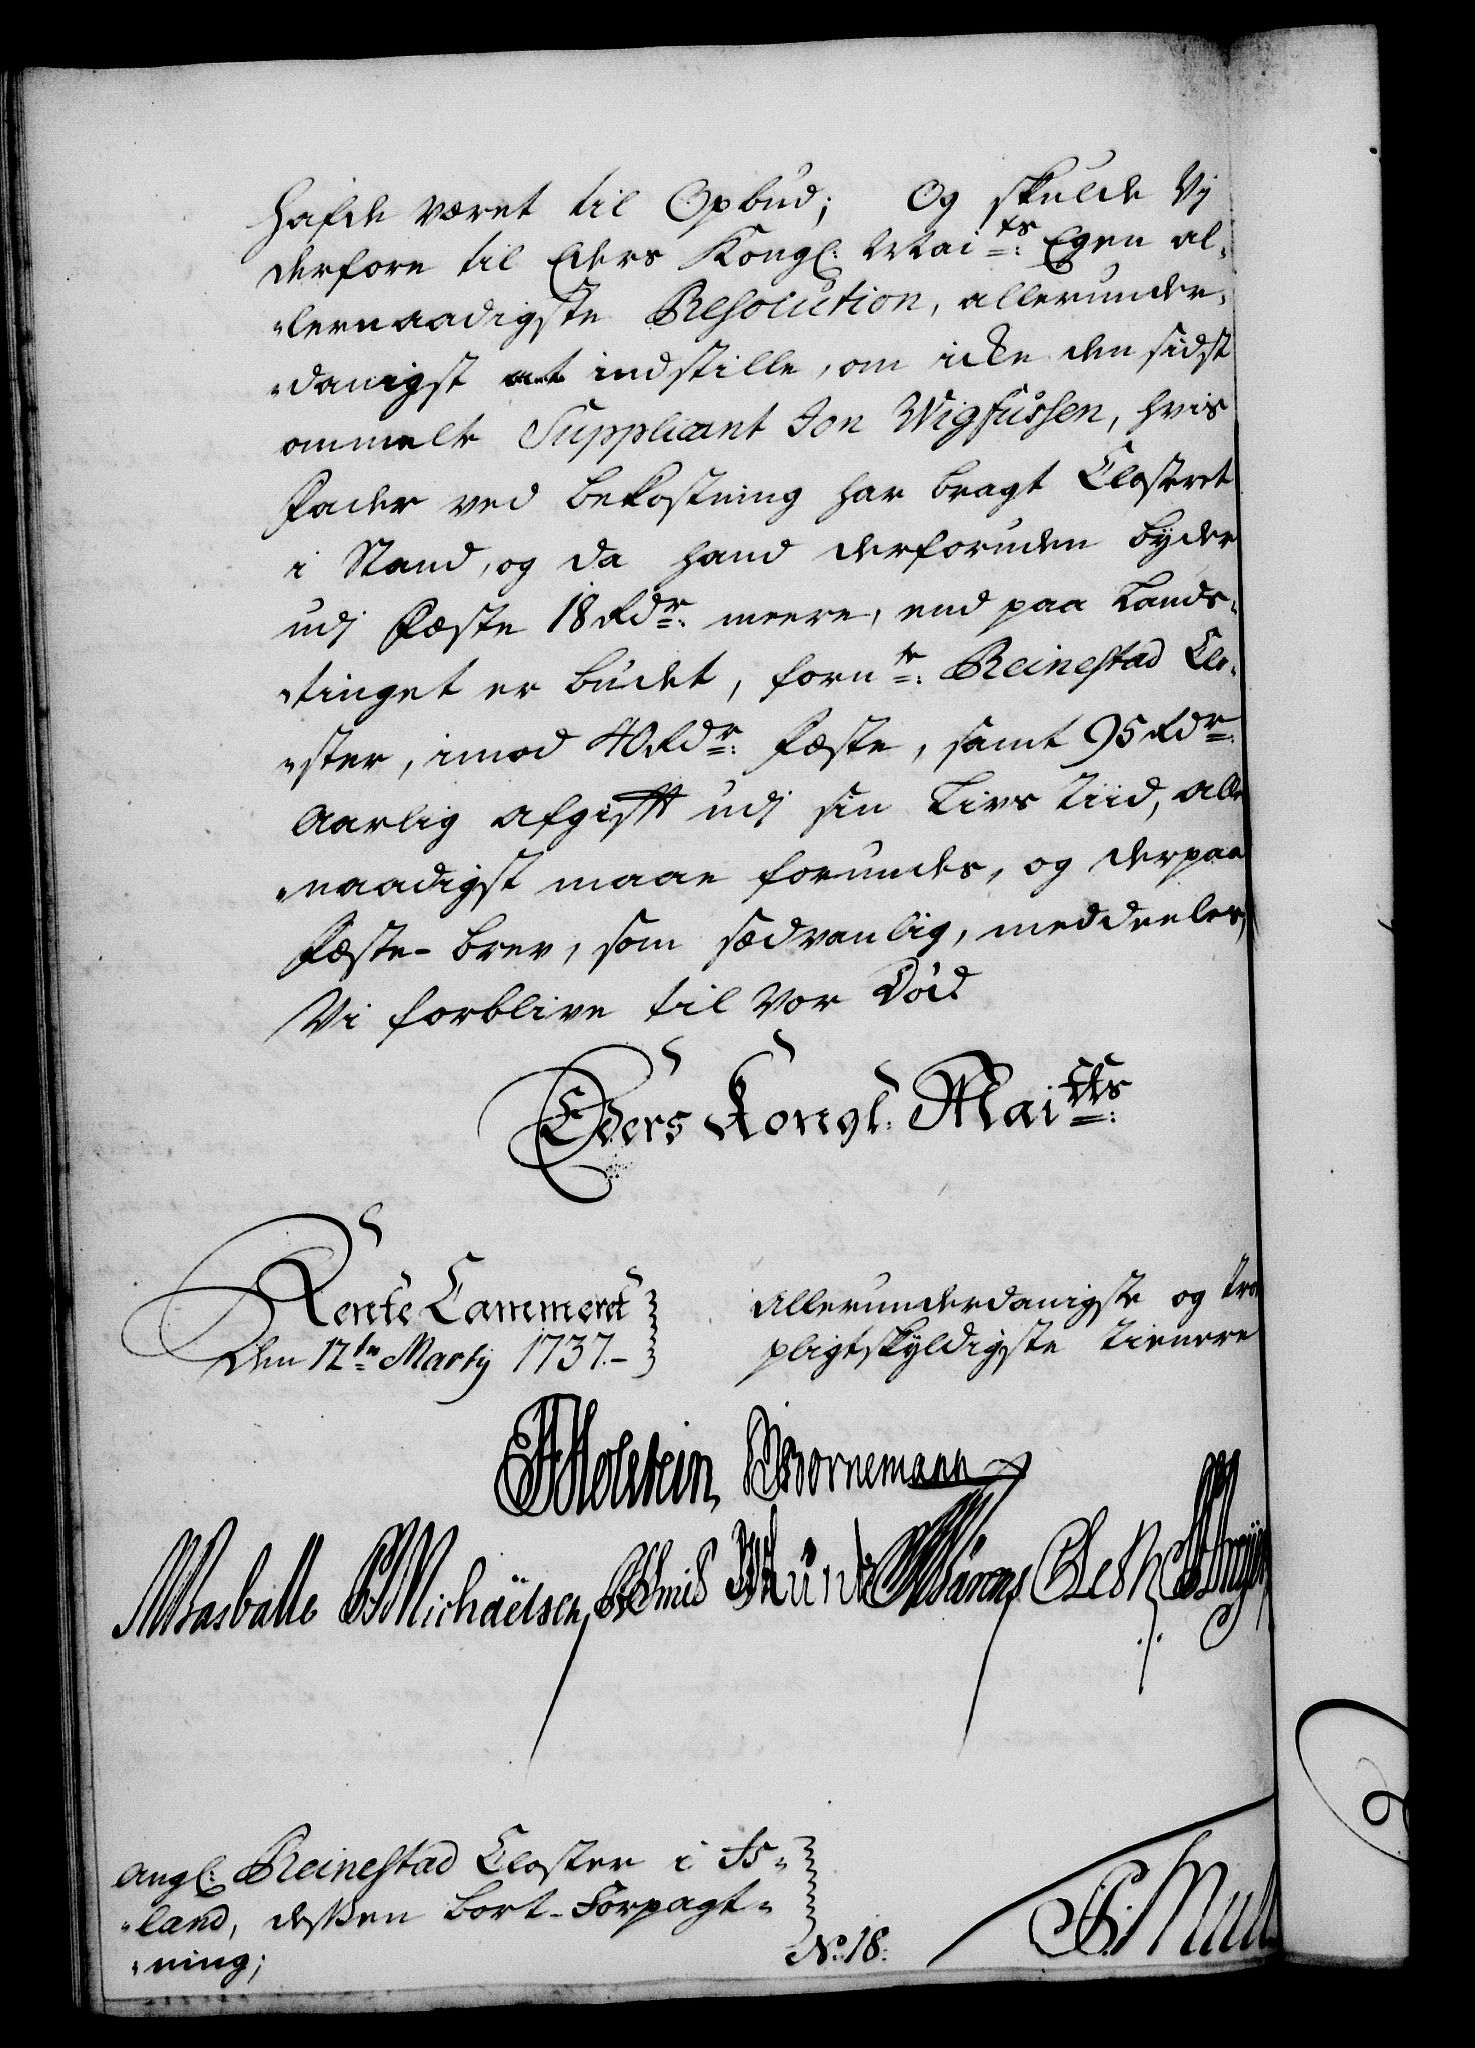 hafde været til Opbud; Og skulde Vj
derfore til Eders Kongl: Mai^ts: Egen al-
-lernaadigste Resolution, allerunder-
-danigst at indstille, om icke den sidst
ommelte Supplicant Jon Wigfussen, hvis
Fader ved bekostning har bragt Closteret
i Stand, og da hand derforuden byder
udj Fæste 18 Rdr: meere, end paa Lands-
-tinget er budet, forn^te: Reinestad Clo-
-ster, imod 40 Rdr: Fæste, samt 95 Rdr:
Aarlig afgifft udj sin Livs Tiid, aller
-naadigst maae forundes, og derpaa
Fæste-brev, som sædvanlig, meddeeles,
Vi forblive til vor Död
Eders Kongl. Mai^tts:
Rente Cammeret
Den 12^te Martij 1737.-
Allerunderdanigste og tro
pligtskyldigste tienere
Holstein, Bornemann
Basballe Michaëlsen,
Angl: Reinestad Closter i Is-
-land, dessen bort-Forpagt-
-ning;
No. 18.